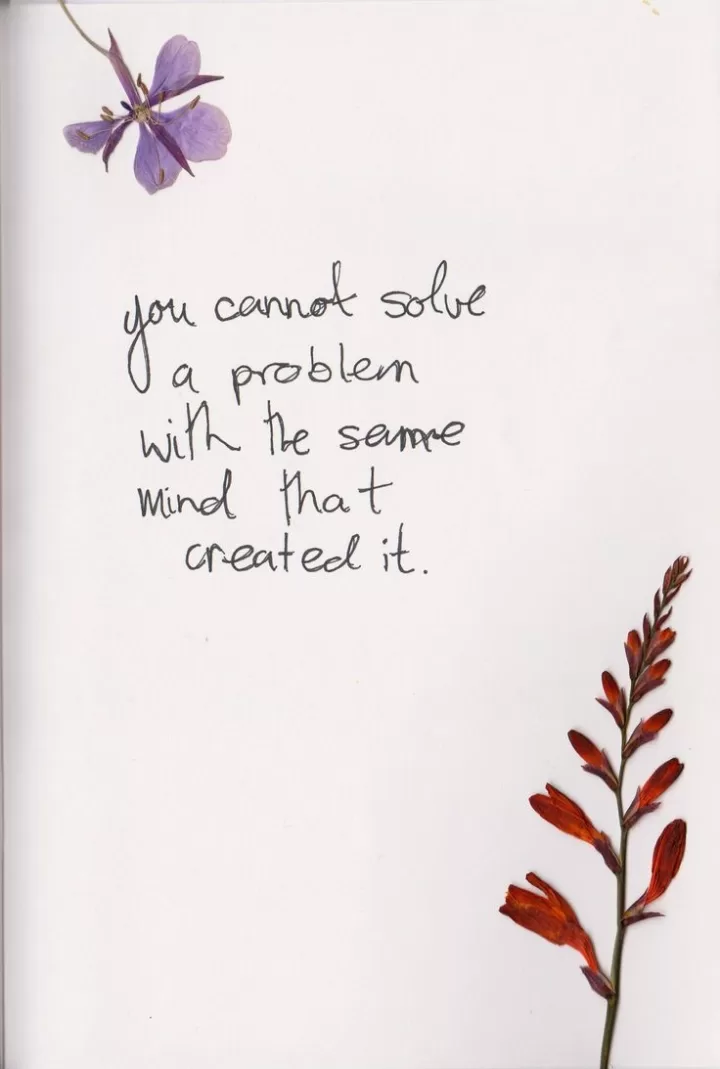 you cannot solve
a problem
with the same
mind that
created it.